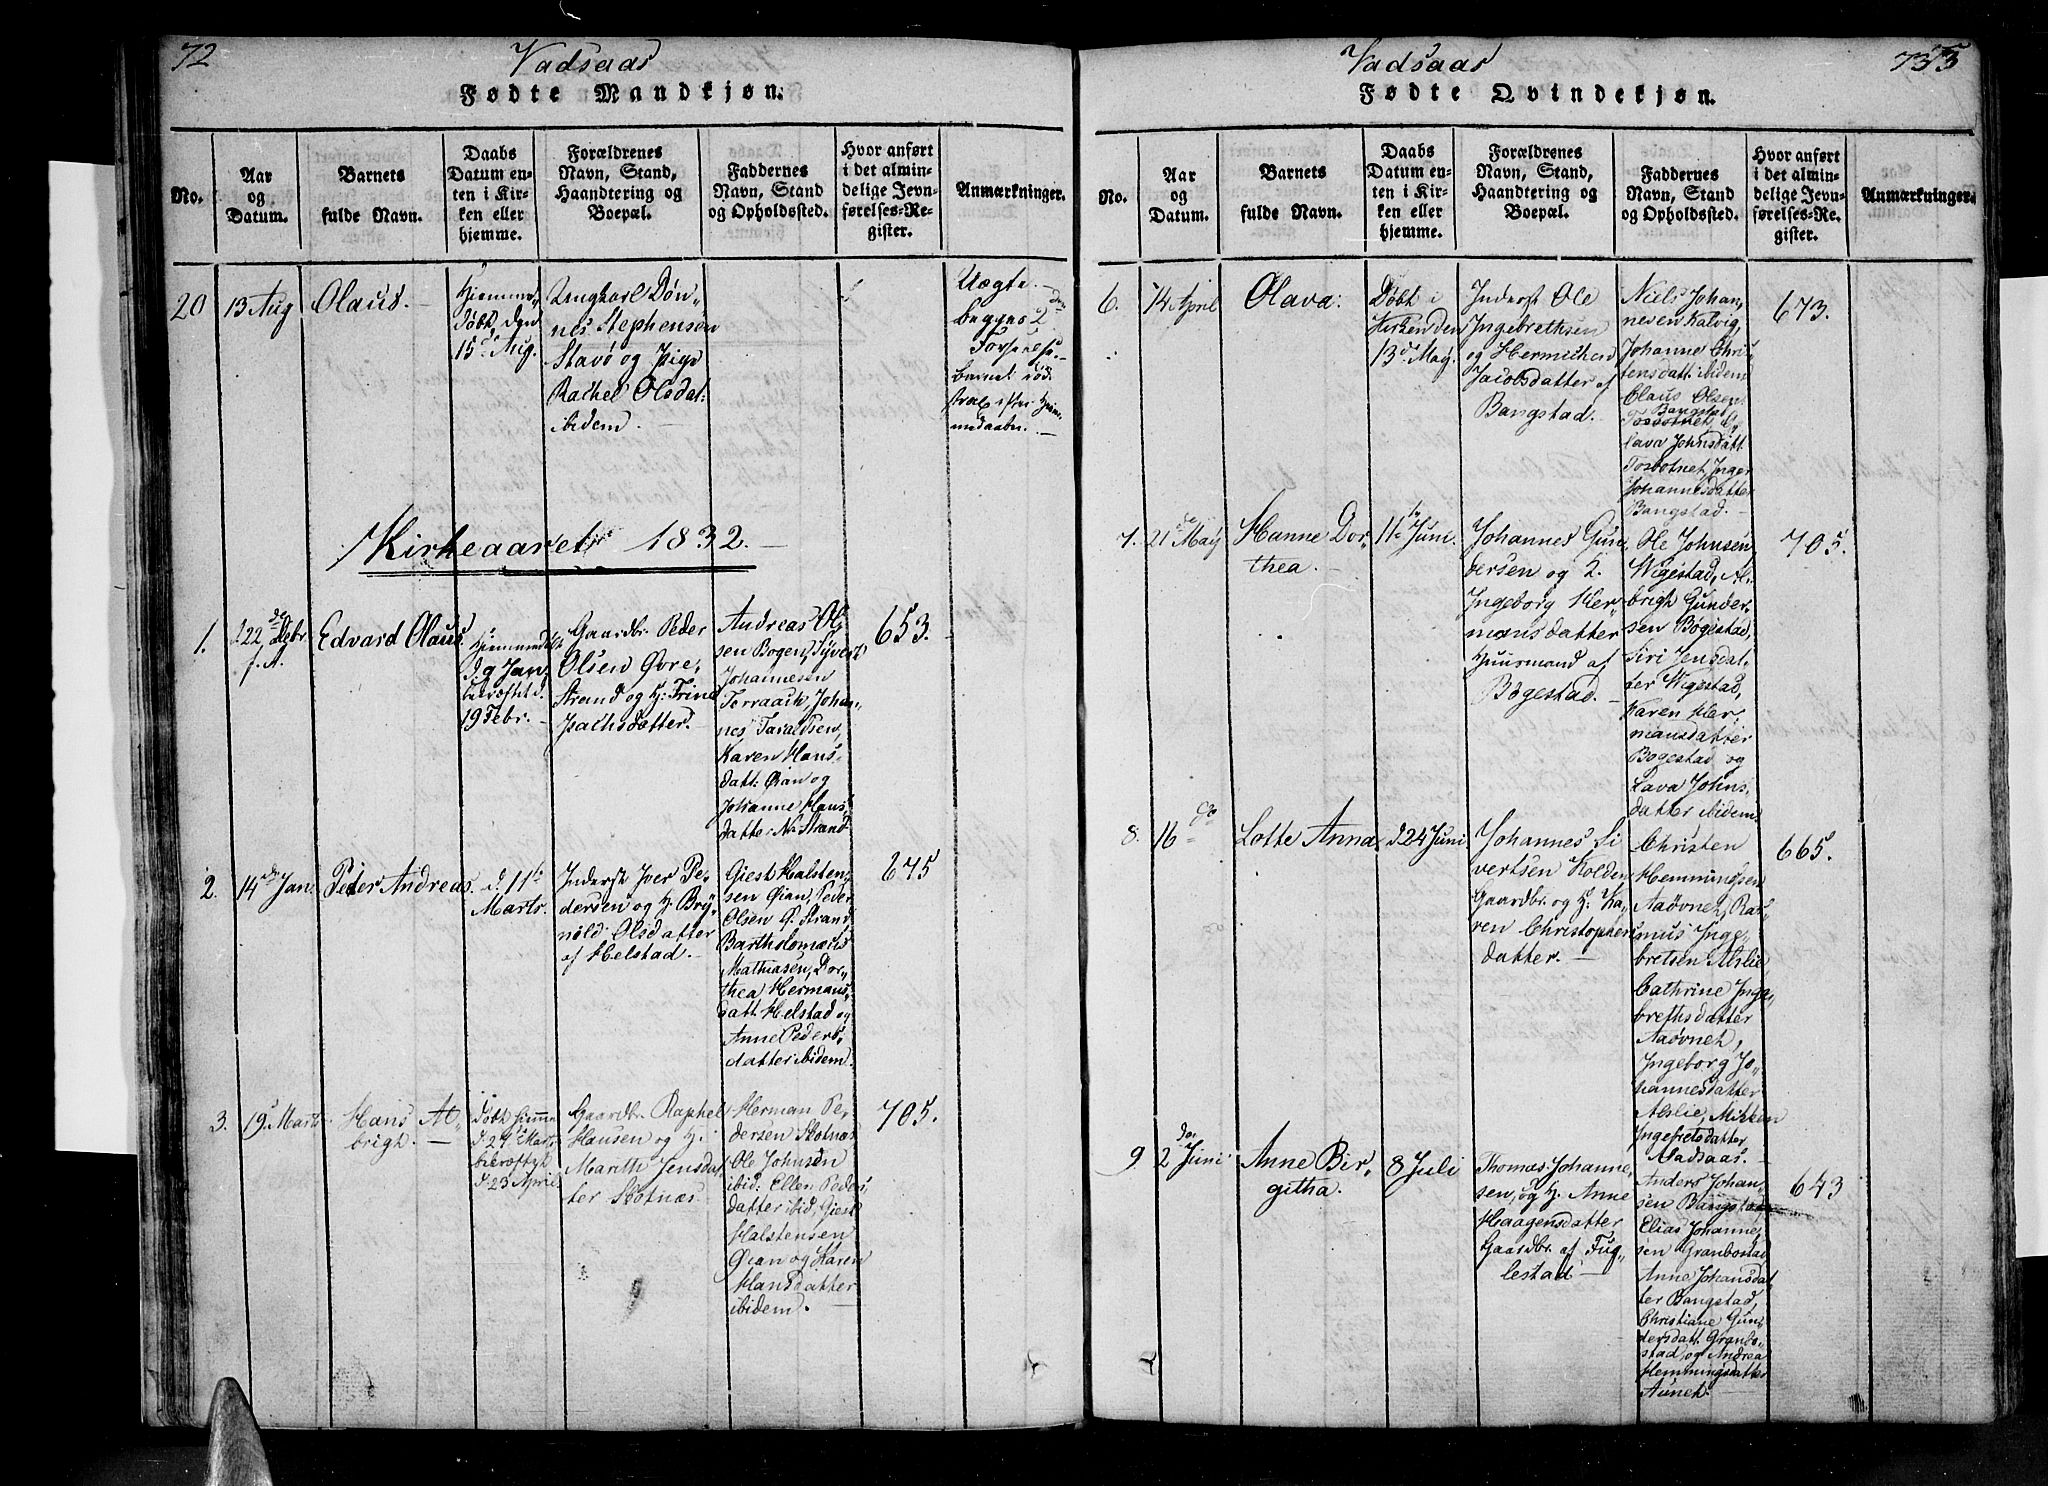 72
Vadsaas
Fødte Mandkjøn.
No.
Aar og Datum.
Barnets fulde Navn.
Daabs Datum enten i Kirken eller hjemme.
Forældrenes Navn, Stand, Haandtering og Boepæl.
Faddernes Navn, Stand og Opholdssted.
Hvor anført i det almindelige Jevnførelses-Register.
Anmærkninger.
20
13 Aug
Olaus.
Hjemme
døbt den
15d Aug.
Ungkarl Døn-
nes Stephensen
Stavø og Pige
Rachel Olsdat:
ibidem.
Uægte
begges 2den
Forseelse.
barnet død
strax efter Hjem-
medaaben.
Kirkeaaret 1832.
1.
d 22de Debr.
f. A.
Edvard Olaus
Hjemmedøbt
d. 9 Jan
bekræftet d.
19 Febr.
Gaardbr. Peder
Olsen Øvre
Strand og H: Trine
Zachsdatter.
Andreas Ol-
sen Bogen, Syvert
Johannesen
Terraack, Johan-
nes Taraldsen,
Karen Hans-
datt: Øian og
Johanne Hans-
datter N. Strand
653.
2.
14de Jan.
Peder Andreas.
d. 11te
Marts.
Inderst Iver Pe-
dersen og H. Bry-
nild Olsdatter
af Helstad.
Giest Halsten-
sen Øian, Peder
Olsen Ø: Strand
Bartholomæus
Mathiasen, Dor-
thea Hermans-
datt. Helstad og
Anne Peders-
datter ibidem.
675
3.
19d Marts
Hans Al-
brigt.
døbt hjemme
d 24d Marts
bekræftet
d 23 April
Gaardbr. Raphel
Hansen og H:
Marith Jensdat-
ter Skotnæs.
Herman Pe-
dersen Skotnæs
Ole Johnsen
ibid: Ellen Peders-
datter ibid, Giest
Halstensen
Øian og Karen
Hansdatter
ibidem.
705.
Vadsaas
73
Fødte Qvindekjøn.
No.
Aar og Datum.
Barnets fulde Navn.
Daabs Datum enten i Kirken eller hjemme.
Forældrenes Navn, Stand, Haandtering og Boepæl.
Faddernes Navn, Stand og Opholdssted.
Hvor anført i det almindelige Jevnførelses-Register.
Anmærkninger.
6.
14 April
Olava.
Døbt i
Kirken den
13d May.
Inderst Ole
Ingebrethsen
og Hermichen
Jacobsdatter af
Bangstad.
Niels Johan-
nesen Kalvig,
Johanne Chri-
stensdatt: ibidem
Claus Olsen
Bangstad
Tosbotnet, O-
lava Johnsdatt.
Tosbotnet, Inger
Johannesdatter
Bangstad.
673.
7.
21de May
Hanne Dor-
thea.
11te Juni.
Johannes Gun-
dersen og H.
Ingeborg Her-
mansdatter
Huusmand af
Bøgestad.
Ole Johnsen
Wigestad, Al-
brigt Gunder-
sen Bøgestad,
Siri Jensdat-
ter Wigestad,
Karen Her-
mansdatter
Bogestad og
Lava Johns-
datter ibidem.
705.
8.
16 do
Lotte Anna
d 24 Juni
Johannes Si-
vertsen Kolden
Gaardbr. og H: Ka-
ren Christophers
datter.
Christen
Hemmingsen
Aaøvnet, Ras-
mus Inge-
bretsen Alslie
Cathrine Inge-
brethsdatter
Aaøvnet,
Ingeborg Jo-
hannesdatter
Alslie, Mikken
Ingebretsdatter
Vadsaas.
665.
9.
2den Juni
Anne Bir-
githa.
8 Juli
Thomas Johanne-
sen, og H. Anne
Haagensdatter
Gaardbr. af Fug-
lestad
Anders Johan-
sen Bangstad
Elias Johanne-
sen Granbostad
Anne Johansdat
ter Bangstad,
Christiane Gun-
dersdatt. Granbo-
stad, og Andrea
Hemmingsdatter
Aunet.
643